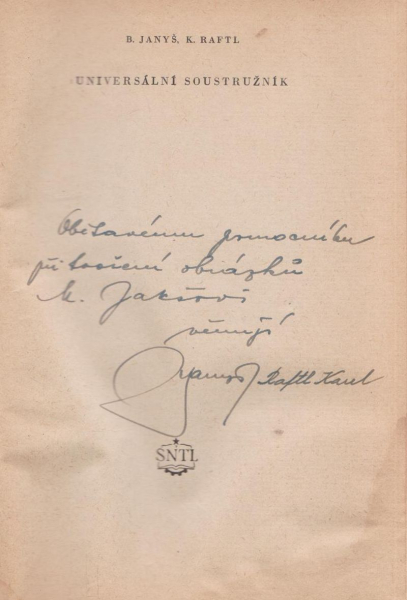 B. JANYŠ, K. RAFTL
UNIVERSÁLNÍ SOUSTRUŽNÍK
Obětavému pomocníku
při točení obrázků
M. Jakšovi
věnují
Janyš Raftl Karel
SNTL